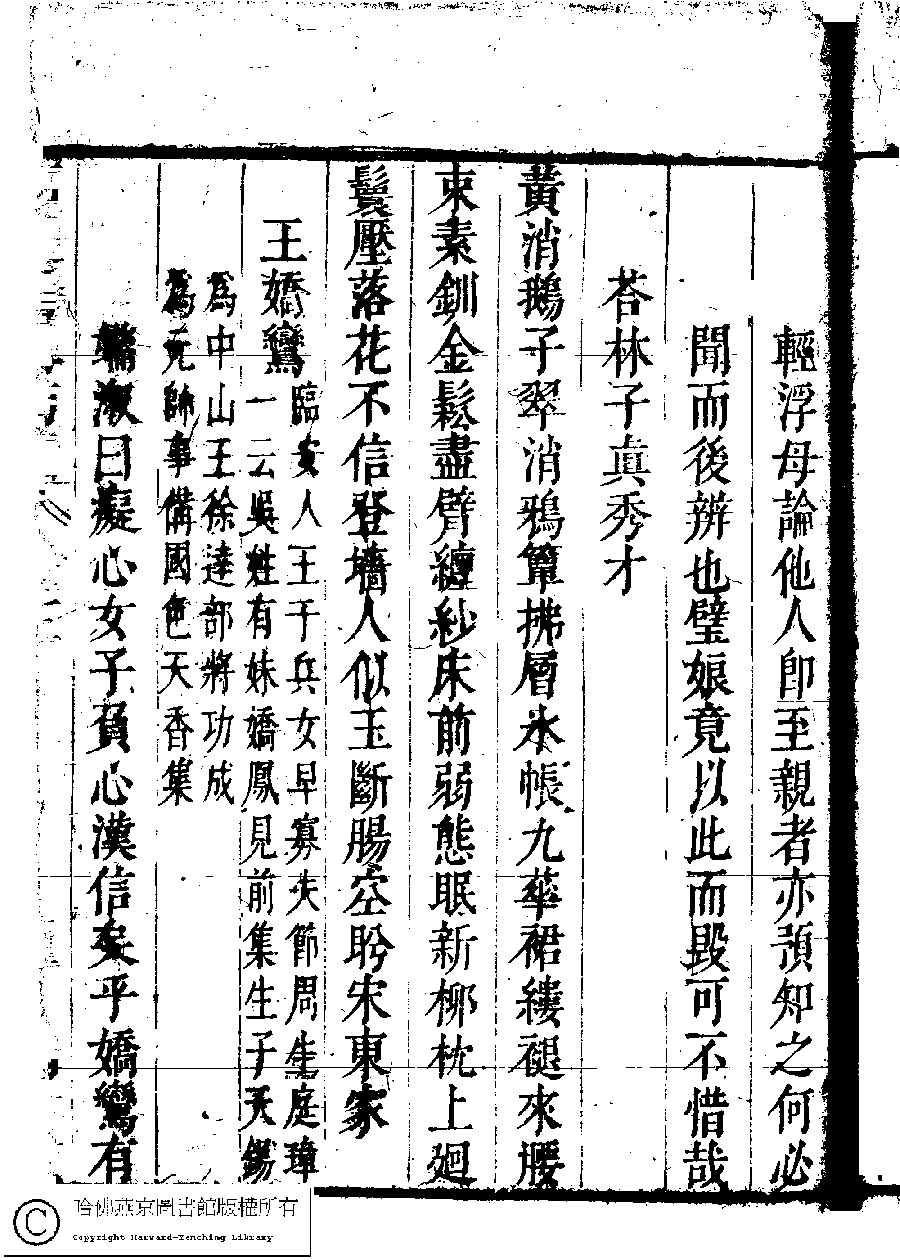 輕浮毋論他人卽至親者亦預知之何必
聞而後辨也璧娘竟以此而毀可不惜哉
荅林子眞秀才
黃消鵝子翠消鴉簟拂層氷帳九華裙縷褪來腰
束素釧金鬆盡臂纏紗床前弱態眠新柳枕上廻
鬟壓落花不信登墻人似玉斷腸空盻宋東家
王嬌鸞
臨安人王千兵女早寡失節周生庭璋
一云吳姓有妹嬌鳳見前集生子天錫
爲中山王徐達部將功成
爲元帥事備國色天香集
端淑曰癡心女子負心漢信矣乎嬌鸞有
哈佛燕京圖書館版權所有
Copyright Harvard-Yenching Library